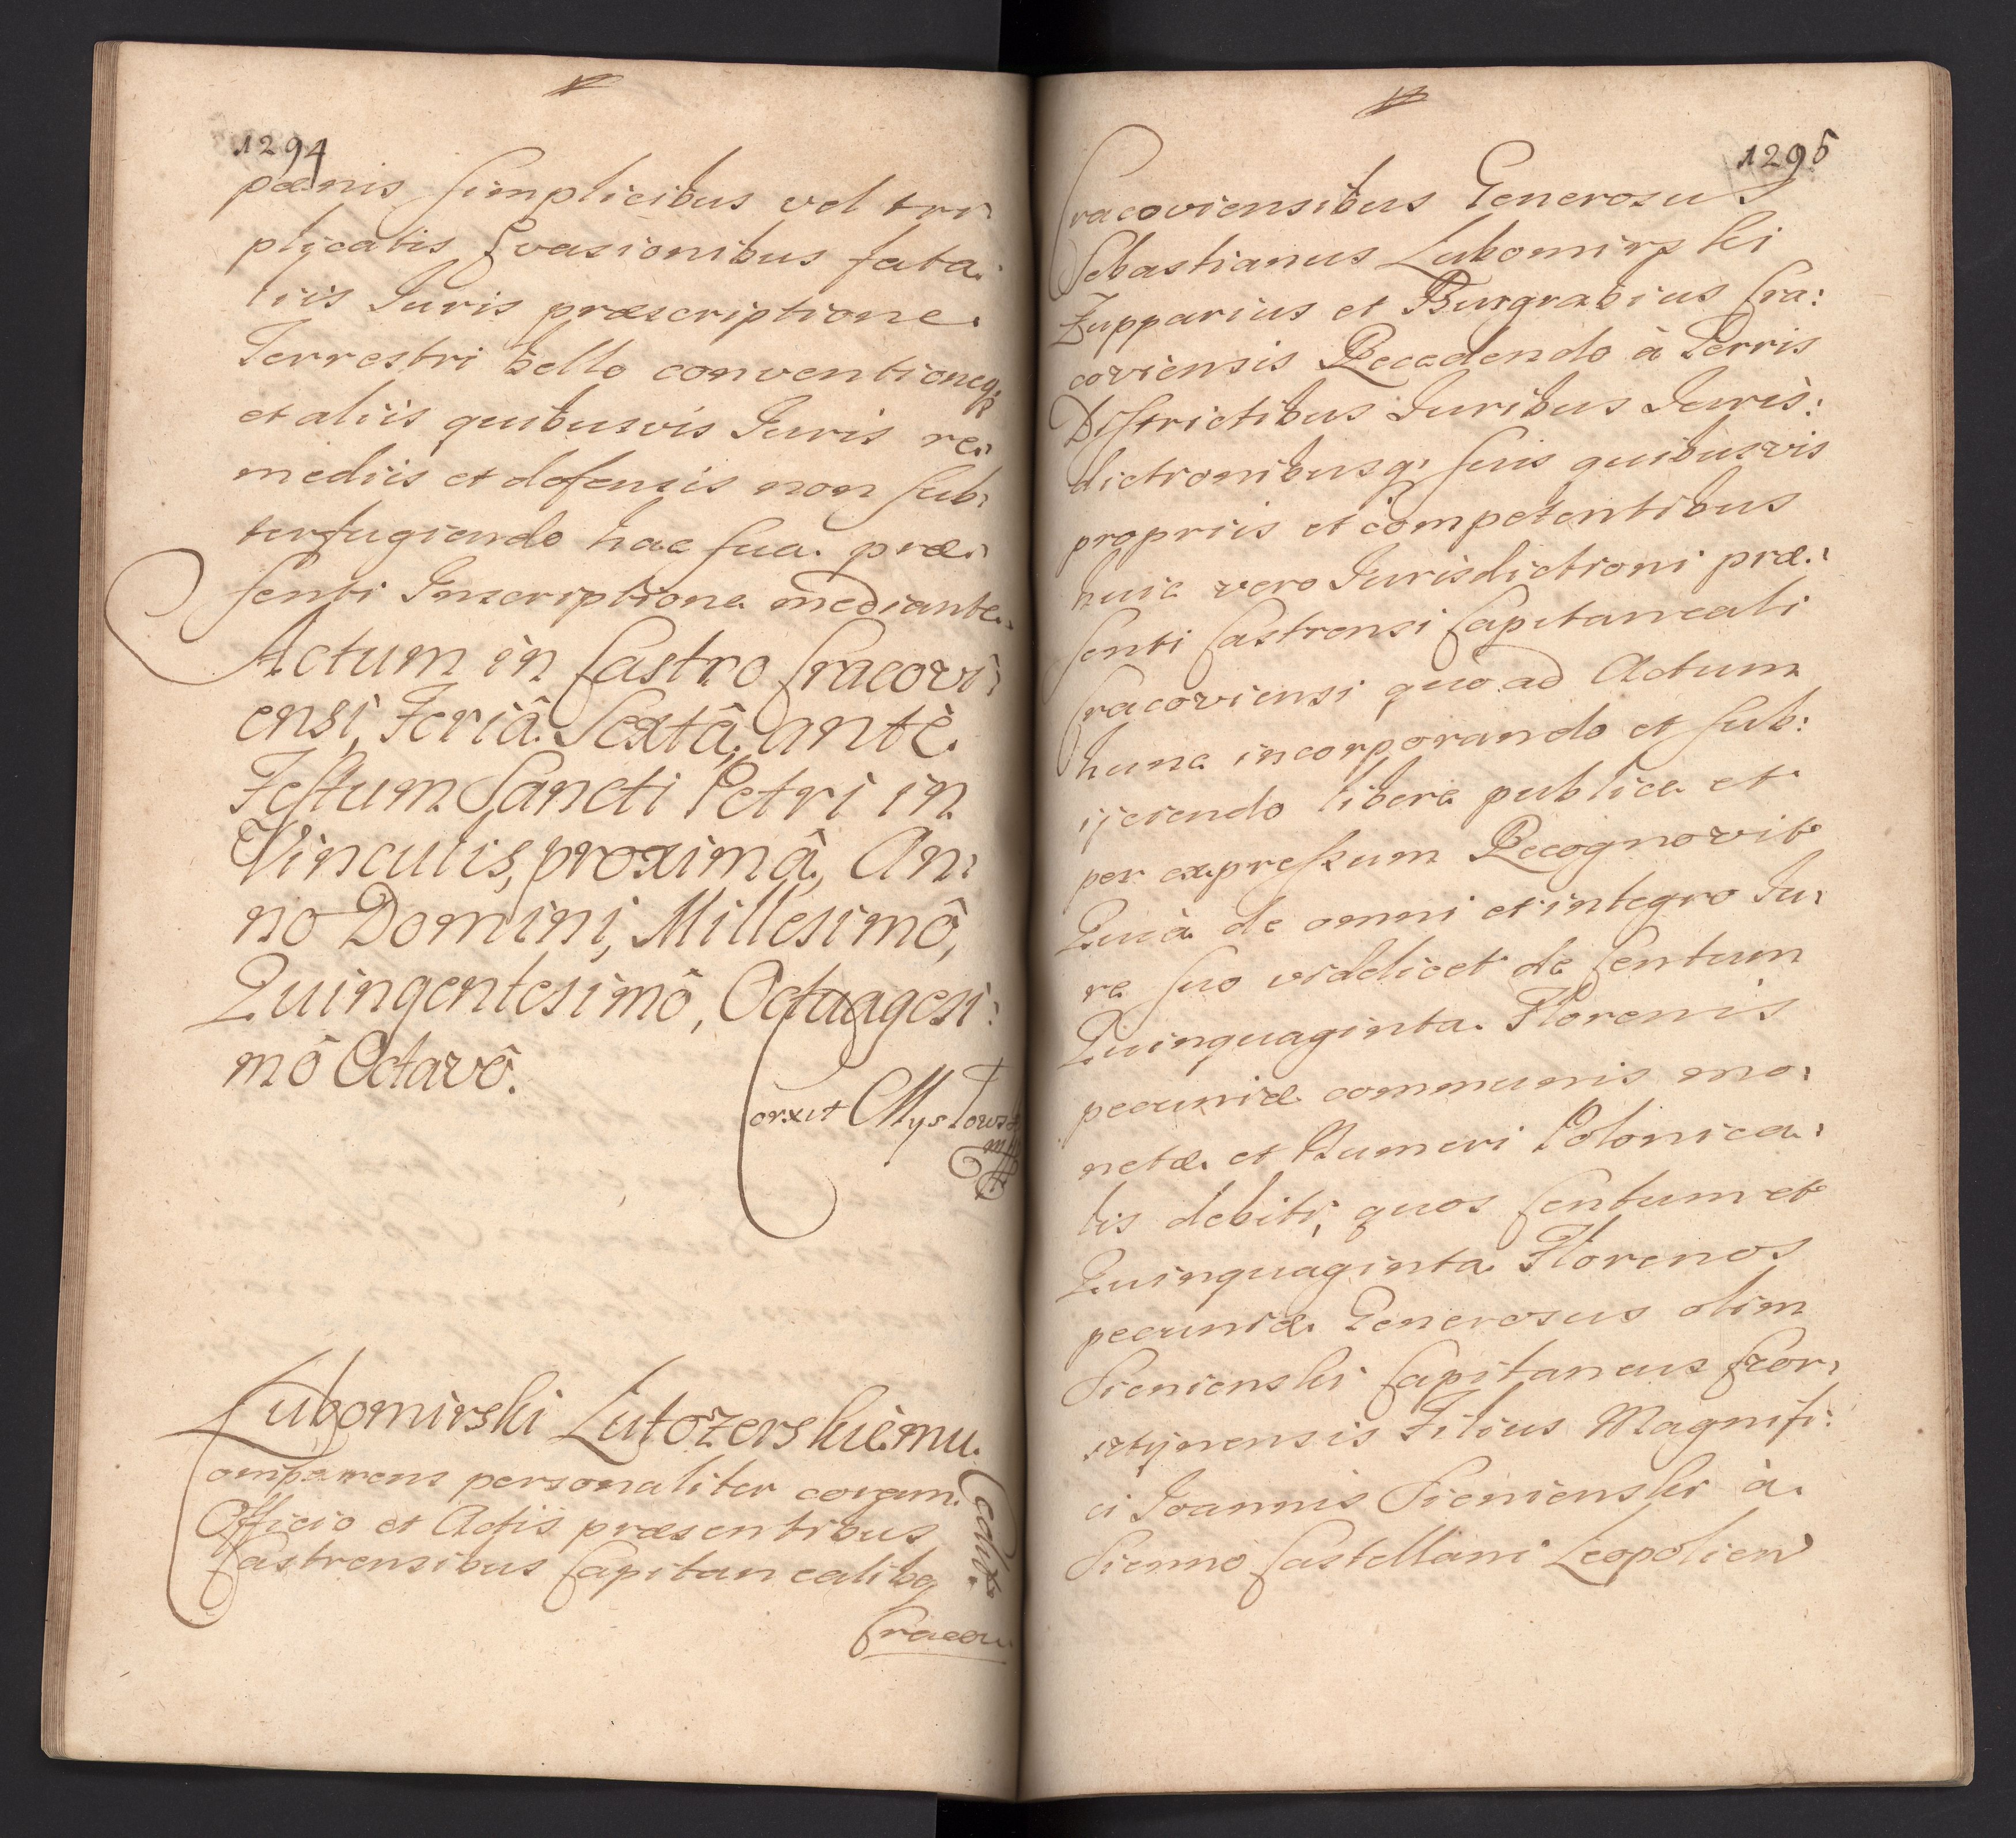 1294
pœnis simplicibus vel tri:
plicatis Evasionibus fata:
liis Iuris præscriptione
Terrestri bello conventioneq;
et aliis quibusvis Iuris re:
mediis et defensis non sub:
terfugiendo hac sua præ:
senti Inscriptione mediante.
Actum in Castro Cracovi:
ensi, Feriâ Sextâ, antè
Festum Sancti Petri in
Vinculis, proximâ, An:
no Domini, Millesimô,
Quingentesimô, Octuagesi:
mô Octavô.
Corxit Mysłowski
mpp
Lubomirski Lutozerskiemu.
Comparens personaliter coram
Officio et Actis præsentibus
Castrensibus Capitanealibq
Cracov:
1295
Cracoviensibus Generosus
Sebastianus Lubomirski
Zupparius et Burgrabius Cra:
coviensis Recedendo à Terris
Districtibus Iuribus Iuris:
dictionibusq; suis quibusvis
propriis et competentibus
huic vero Iurisdictioni præ:
senti Castrensi Capitaneali
Cracoviensi quo ad Actum
hunc incorporando et sub:
ijciendo libere publice et
per expressum Recognovit
Quià de omni et integro Iu:
re suo videlicet de Centum
Quinquaginta Florenis
pecuniæ communis mo:
netæ et Numeri Polonica:
lis debiti, quos Centum et
Quinquaginta Florenos
pecuniæ Generosus olim
Sienienski Capitaneus Czor:
sztynensis Filius Magnifi:
ci Joannis Sienienski à
Sienno Castellani Leopolien